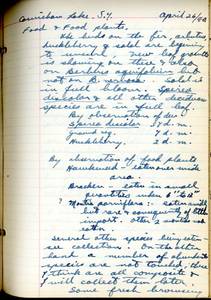 Cowichan Lake, S.Y. April 26/40
Food & Food plants.
The buds on the fir, arbutus,
huckleberry & salal are beginning
to unfold. new leaf growth
is showing on these & also
on Berberis aquifolium but
not on B. nervosa. Salal is
in full bloom. Spirea
discolor & all other deciduous
species are in full leaf.
By observation of deer
Spirea discolor 3 d. m.
Ground rig. 7 d. m.
Huckleberry. 2 d. m.
By observation of food plants
Hawkweed - eaten in some
area
Bracken - eaten in small
quantities under "
? eaten well
but rare & consequently of little
import. other's would not
eaten.
Several other species being eaten -
see collections. On the other
hand a number of abundant
species are not touched. These
I think are all composite &
I will collect them later.
Some fresh browsing